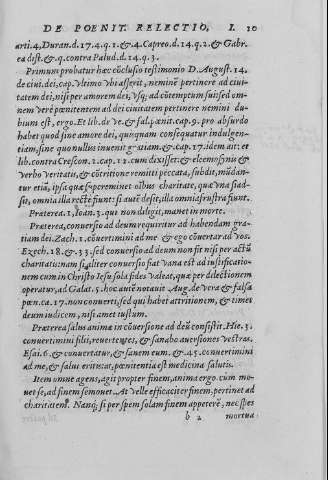 DE POENIT. RELECTIO. I. 10
arti.4, Duran.d.17.4.q.1.&.4. Capreo.d.14.q.2.& Gabr.
ea dist.&.q. contra Palud.d.14.q.3.
Primum probatur hæc cõclusio testimonio D. August. 14.
de ciui.dei, cap. vltimo vbi asserit, neminẽ pertinere ad ciui-
tatem dei, nisi per amorem dei, vsq; ad cõtemptum sui: sed om-
nem verè pœnitentem ad dei ciuitatem pertinere nemini du-
bium est, ergo. Et lib. de ve. & fal. pœnit. cap. 9. pro absurdo
habet quod sine amore dei, quisquam consequatur indulgen-
tiam, sine quo nullus inuenit gratiam, & cap. 17. idem ait: et
lib. contra Crescon. 2. cap. 12. cum dixisset: & eleemosynis &
verbo veritatis, & cõtritione remitti peccata, subdit, mũdan-
tur etiã, ipsa quæ supereminet oĩbus charitate, quæ vna si ad-
sit, omnia illa rectè fiunt: si autẽ desit, illa omnia frustra fiunt.
Præterea. 1. Ioan. 3. qui non diligit, manet in morte.
Præterea, conuersio ad deum requiritur ad habendam gra-
tiam dei. Zach. 1. cõuertimini ad me & ego cõuertar ad vos.
Ezech. 18. & 33. sed conuersio ad deum non fit nisi per actũ
charitatis: nam si, aliter conuersio fiat vana est ad iustificatio-
nem cum in Christo Iesu sola fides valeat, quæ per dilectionem
operatur, ad Galat. 5. hoc autẽ notauit Aug. de vera & falsa
pœn. ca. 17. non conuerti, sed qui habet attritionem, & timet
deum iudicem, nisi amet iustum.
Præterea salus animæ in cõuersione ad deũ consistit. Hie. 3.
conuertimini filij, reuertẽtes, & sanabo auersiones vestras.
Esai. 6. & conuertatur, & sanem eum, & 45. conuertimini
ad me, & salui eritis at, pœnitentia est medicina salutis.
Item omne agens, agit propter finem, anima ergo, cũm mo-
uet se, ad finem se mouet. At velle efficaciter finem, pertinet ad
charitatem. Nanq; si per spem solam finem appeterẽ, nec spes
b 2 mortua